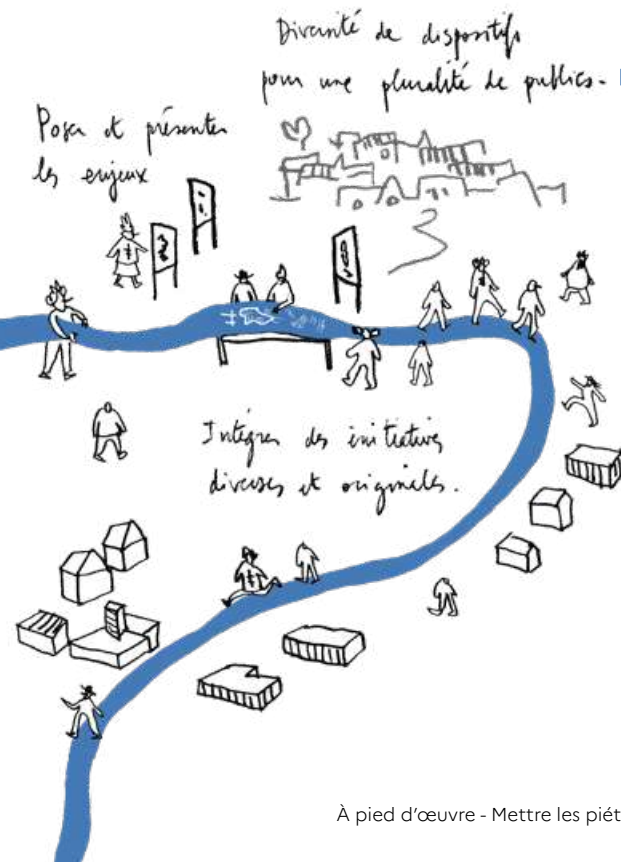 Diversité de dispositifs
pour une pluralité de publics.
Poser et présenter
les enjeux
Intégrer des initiatives
diverses et originales.
À pied d'œuvre - Mettre les piét